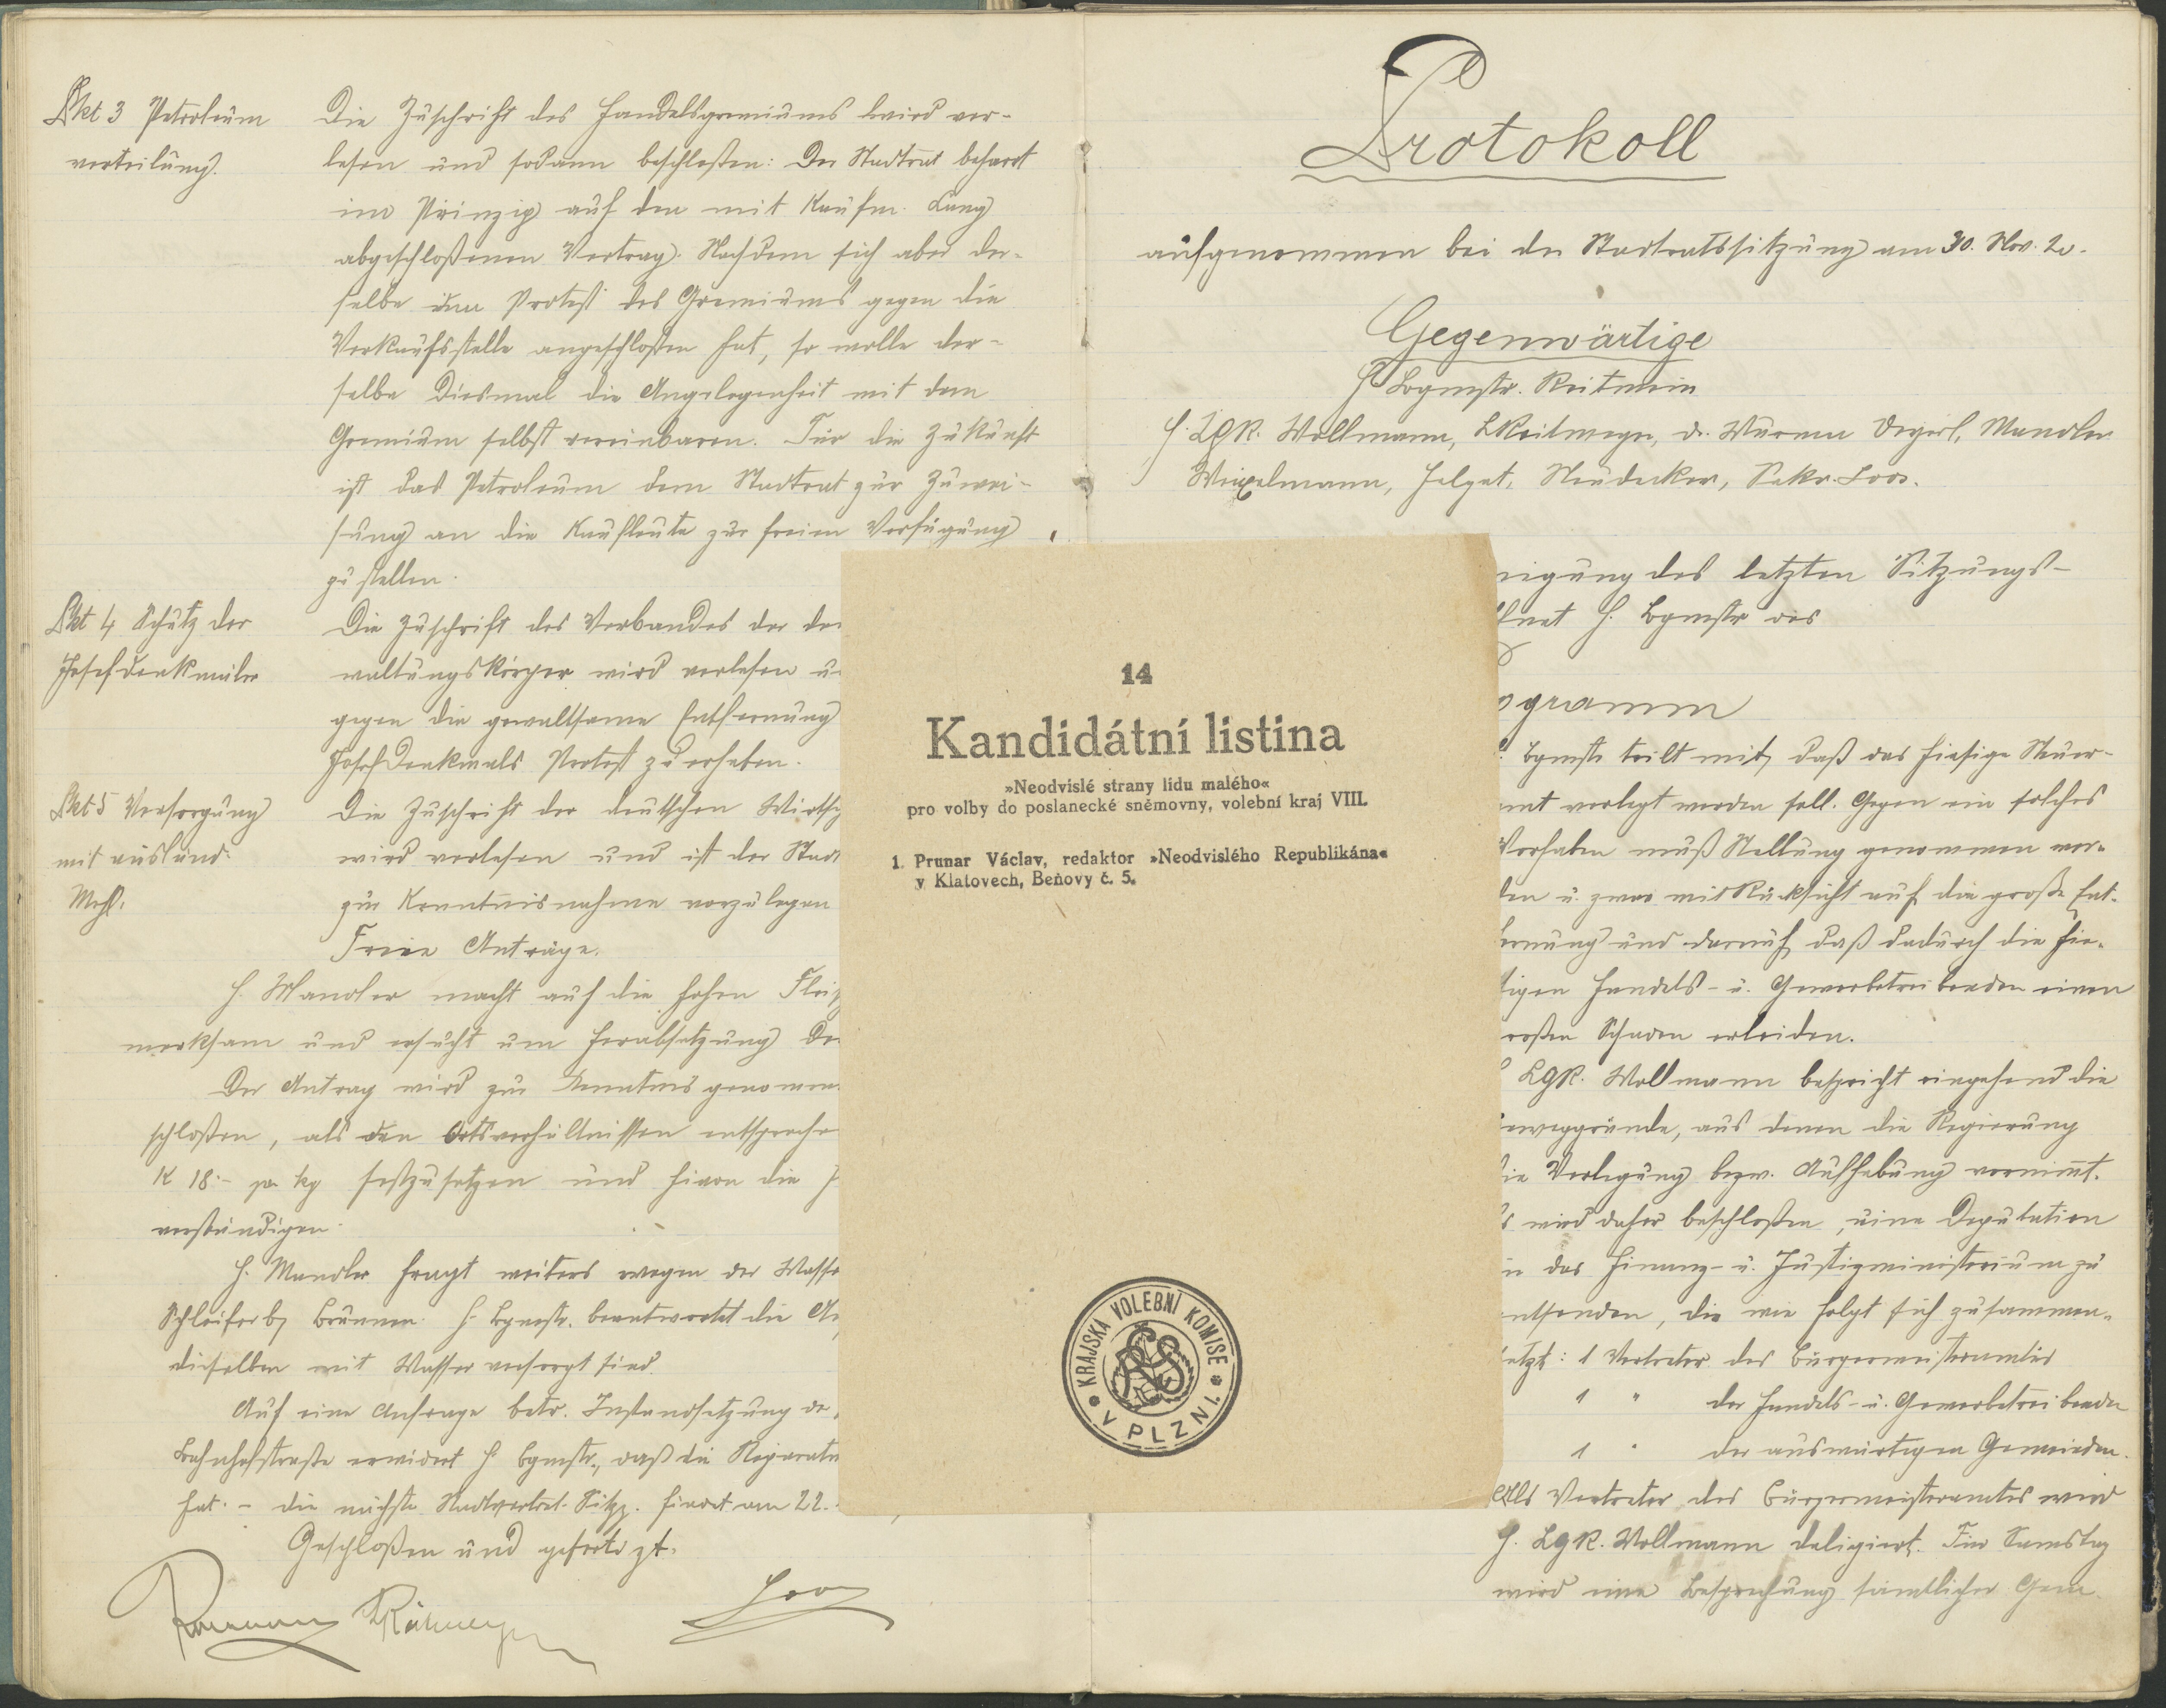 Pkt 3 Petroleum
verteilung.
Die Zuschrift des Handelsgremiums wird ver-
lesen und sodann beschloßen: Der Stadtrat beharrt
im Prinzip auf den mit Kaufm. Lang
abgeschloßenen Vertrag. Nachdem sich aber der-
selbe dem Protest des Gremiums gegen die
Verkaufsstelle angeschloßen hat, so wolle der-
selbe diesmal die Angelegenheit mit dem
Gremium selbst vereinbaren. Für die Zukunft
ist das Petroleum dem Stadtrat zur Zuwei-
sung an die Kaufleute zur freien Verfügung
zu stellen.
Pkt 4 Schutz der
Josefdenkmäler
Die Zuschrift des Verbandes der de
waltungskörper wird verlesen u
gegen die gewaltsame Entfernung
Josef Denkmals Protest zu erheben.
Pkt 5 Versorgung
mit ausländ.
Mehl.
Die Zuschrift der deutschen Wirtsch
wird verlesen und ist der Stadt
zur Kenntnisnahme vorzulegen
Freie Anträge.
H. Mandler macht auf die hohen Fleis
merksam und ersucht um Herabsetzung de
Der Antrag wird zur Kenntnis genomm
schloßen, als den Ortsverhältnissen entspreche
K 18.- per kg festzusetzen und hievon die
verständigen.
H. Mandler fragt weiters wegen der Wasse
Schleiferb, Brünnen. H. Bgmstr. beantwortet die An
dieselben mit Wasser versorgt sind.
Auf eine Anfrage betr. Instandsetzung de
Bahnhofstraße erwidert H. Bgmstr., daß die Reparatu
hat. - die nächste Stadtvertret. Sitzg. findet am 22.
Geschloßen und gefertigt.
Loos
Protokoll
aufgenommen bei der Stadtratssitzung am 30. Nov. 20.
Gegenwärtige
H. Bgmstr. Reitmeier
H. LGR. Wollmann, Reitmeyer, Dr. Wurm Mandler
Weixelmann, Neudecker, Sekr. Loos.
nigung des letzten Sitzungs-
ffnet H. Bgmstr das
ogramm
Bgmstr teilt mit, daß das hiesige Steuer-
amt verlegt werden soll. Gegen ein solches
Vorhaben muß Stellung genommen wer-
den u. zwar mit Rücksicht auf die große Ent-
fernung und darauf, daß dadurch die hie-
sigen Handels- u. Gewerbetreibenden einen
roßen Schaden erleiden.
LGR. Wollmann bespricht eingehend die
eweggründe, aus denen die Regierung
die Verlegung bezw. Aufhebung vornimmt.
s wird daher beschloßen, eine Deputation
n das Finanz- u. Justizministerium zu
entsenden, die wie folgt sich zusammen-
setzt: 1 Vertreter des Bürgermeisteramtes
1 " der Handels- u. Gewerbetreibenden
1 " der auswärtigen Gemeinden.
Als Vertreter des Bürgermeisteramtes wird
H. LGR. Wollmann deligiert. Für Samstag
wird eine Besprechung sämtlicher Gem.
14
Kandidátní listina
»Neodvislé strany lidu malého«
pro volby do poslanecké sněmovny, volební kraj VIII.
1. Prunar Václav, redaktor »Neodvislého Republikána«
v Klatovech, Beňovy č. 5.
KRAJSKÁ VOLEBNÍ KOMISE
V PLZNI